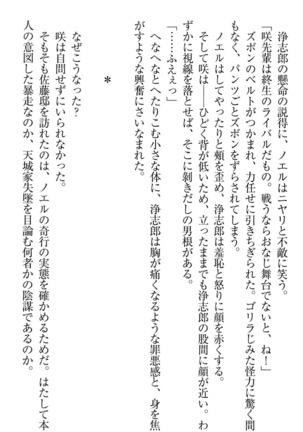 浄志郎の懸命の説得に、ノエルはニヤリと不敵に笑う。
「咲先輩は終生のライバルだもの。戦うならおなじ舞台でないと、ね！」
ズボンのベルトがつかまれ、力任せに引きちぎられた。ゴリラじみた怪力に驚く間
もなく、パンツごとズボンをずらされてしまう。
ノエルはしてやったりと頬を歪め、浄志郎は羞恥と怒りに顔を赤くする。
そして咲は――ひどく背が低いため、立ったままでも浄志郎の股間に顔が近い。わ
ずかに視線を落とせば、そこに剥きだしの男根がある。
「……ふえぇっ」
へなへなとへたりこむ小さな体に、浄志郎は胸が痛くなるような罪悪感と、身を焦
がすような興奮にさいなまれた。
＊
なぜこうなった？
咲は自問せずにいられなかった。
そもそも佐藤邸を訪れたのは、ノエルの奇行の実態を確かめるためだ。はたして本
人の意図した暴走なのか、天城家失墜を目論む何者かの陰謀であるのか。